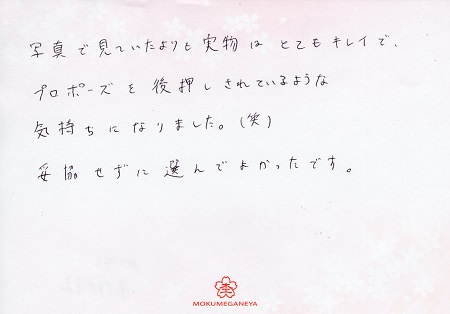 写真で見ていたよりも実物はとてもキレイで、
プロポーズを後押しされているような
気持ちになりました。(笑)
妥協せずに選んでよかったです。
MOKUMEGANEYA